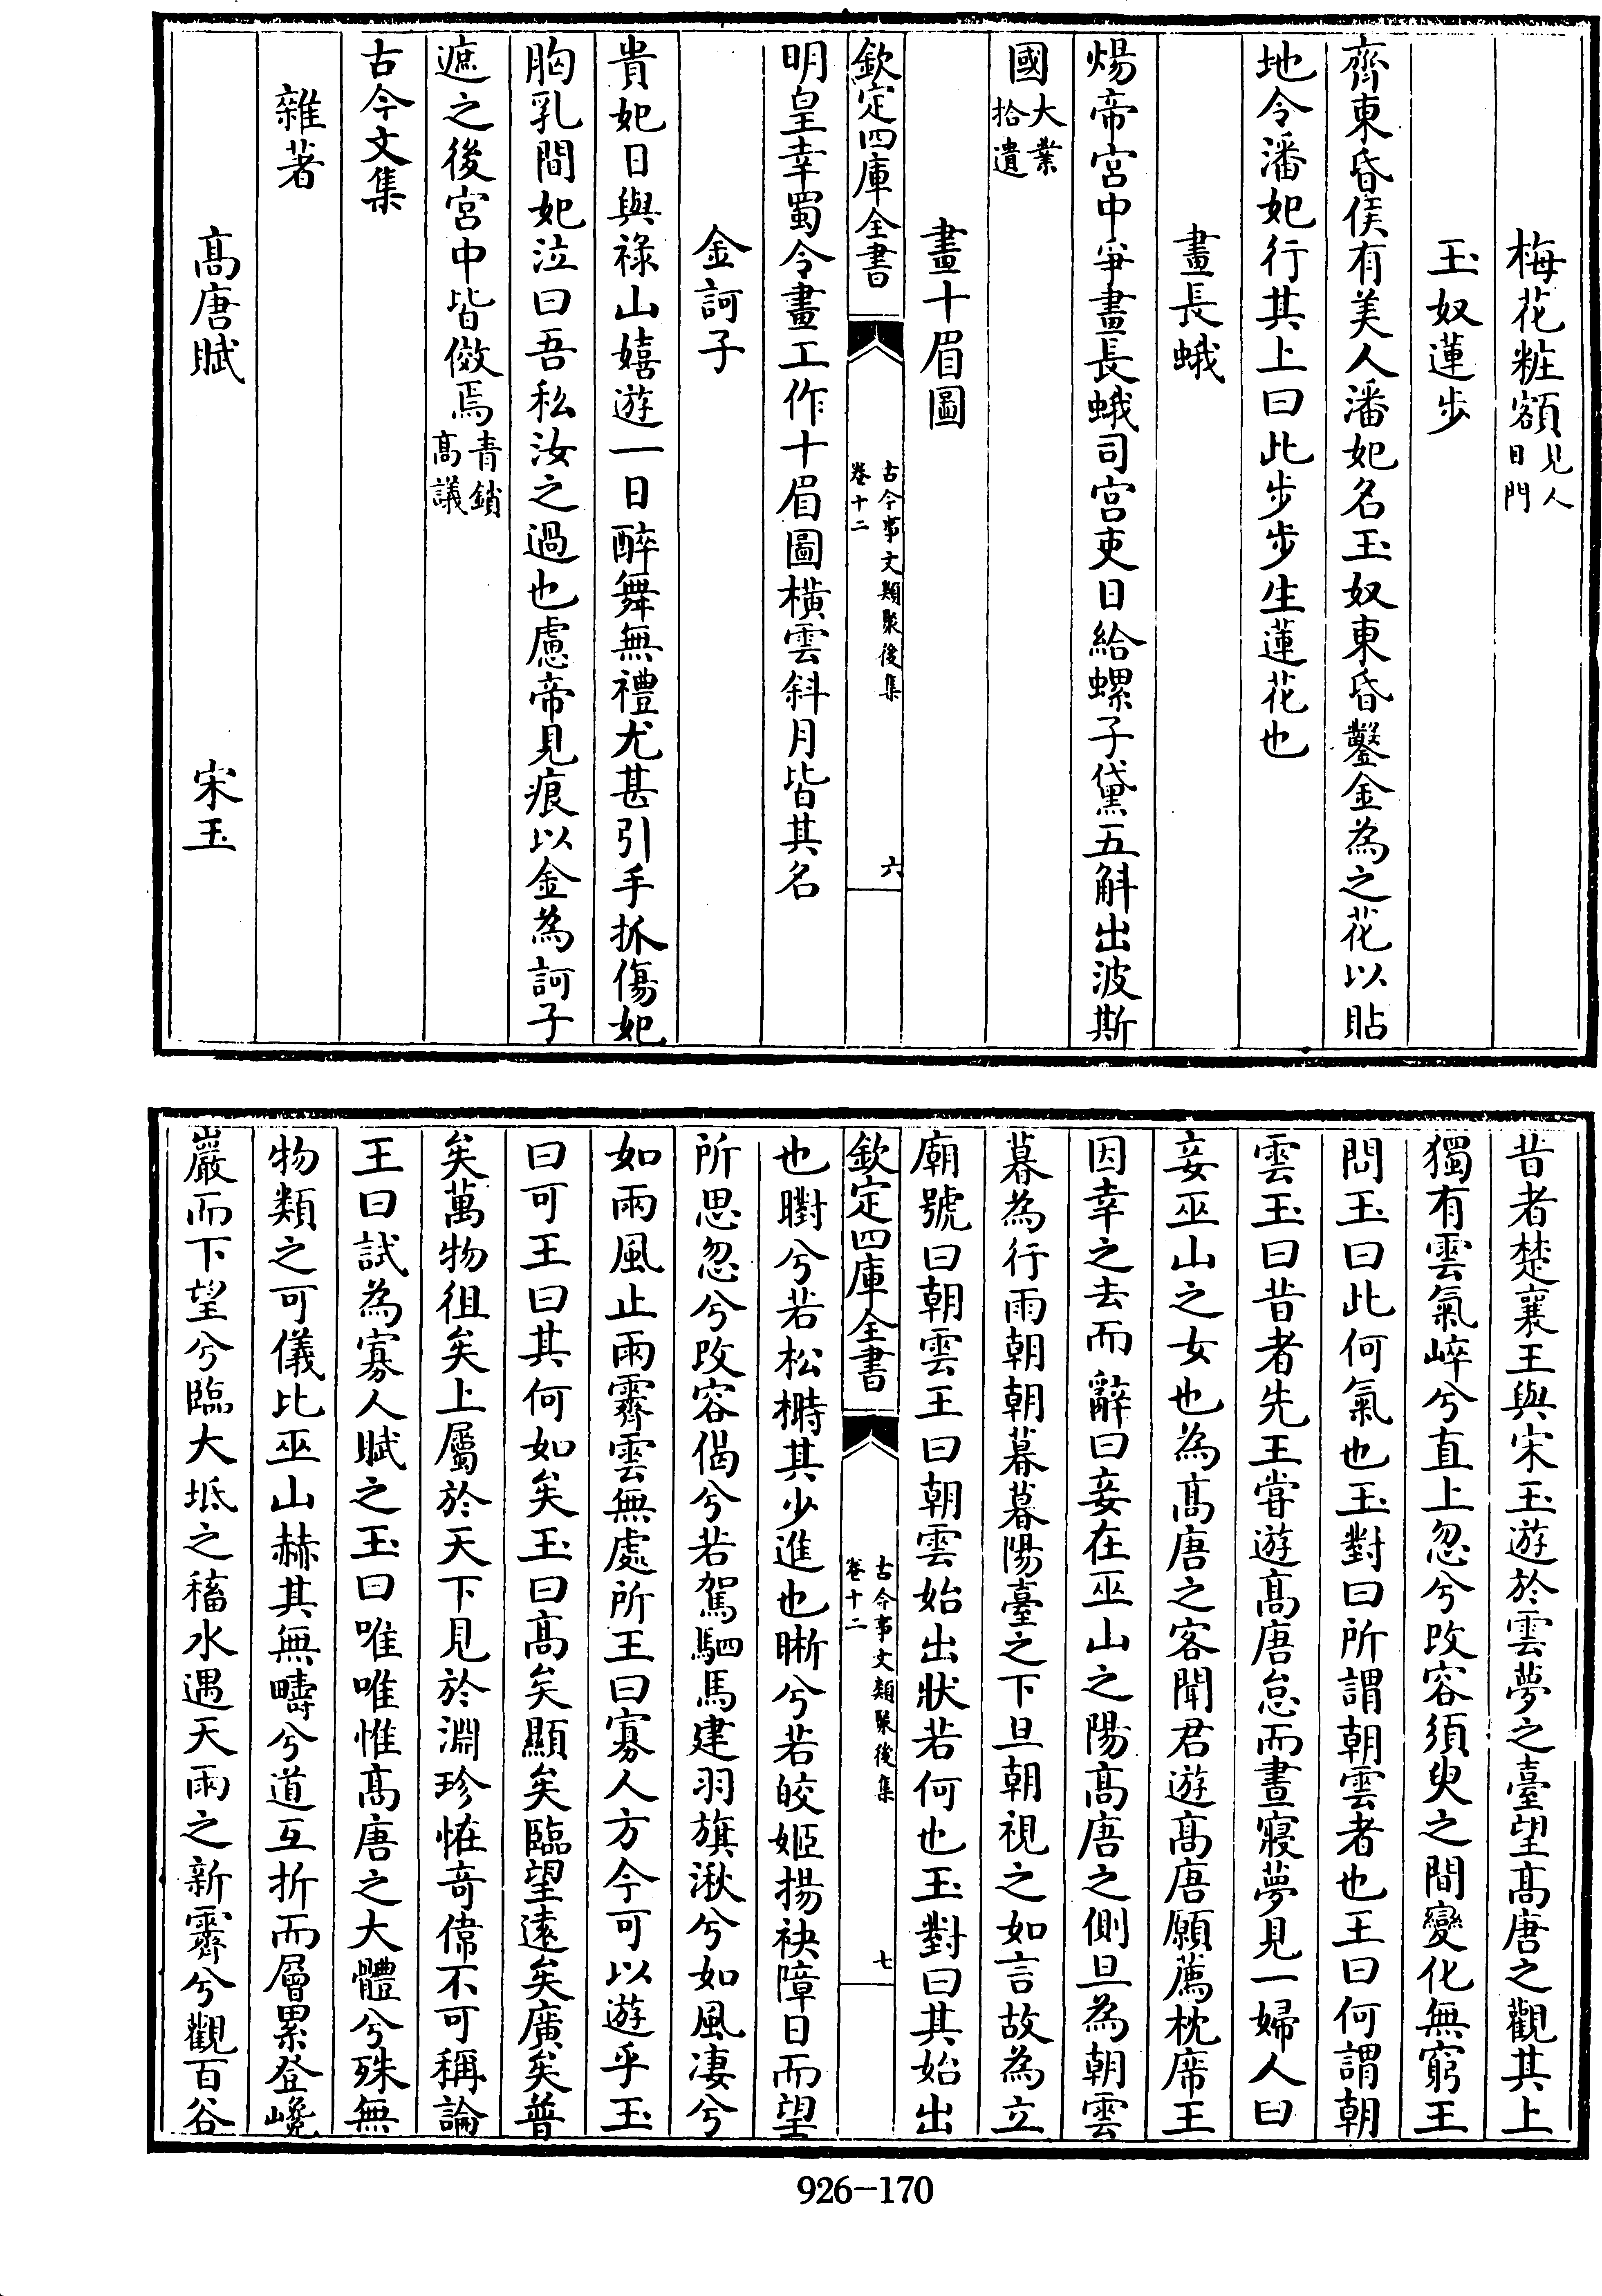 梅花粧額見人日門
玉奴蓮步
齊東昏侯有美人潘妃名玉奴東昏鑿金為之花以貼
地令潘妃行其上曰此步步生蓮花也
畫長蛾
煬帝宮中爭畫長蛾司宮吏日給螺子黛五斛出波斯
國大業拾遺
畫十眉圖
欽定四庫全書
古今事文類聚後集
卷十二
六
明皇幸蜀令畫工作十眉圖橫雲斜月皆其名
金訶子
貴妃日與祿山嬉遊一日醉舞無禮尤甚引手抓傷妃
胸乳間妃泣曰吾私汝之過也慮帝見痕以金為訶子
遮之後宮中皆倣焉青鎖高議
古今文集
雜著
高唐賦 宋玉
昔者楚襄王與宋玉遊於雲夢之臺望高唐之觀其上
獨有雲氣崪兮直上忽兮改容須臾之間變化無窮王
問玉曰此何氣也玉對曰所謂朝雲者也王曰何謂朝
雲玉曰昔者先王嘗遊高唐怠而晝寢夢見一婦人曰
妾巫山之女也為高唐之客聞君遊高唐願薦枕席王
因幸之去而辭曰妾在巫山之陽高唐之側旦為朝雲
暮為行雨朝朝暮暮陽臺之下旦朝視之如言故為立
廟號曰朝雲王曰朝雲始出狀若何也玉對曰其始出
欽定四庫全書
古今事文類聚後集
卷十二
七
也㬣兮若松榯其少進也晰兮若皎姬揚袂障日而望
所思忽兮改容偈兮若駕駟馬建羽旗湫兮如風凄兮
如雨風止雨霽雲無處所王曰寡人方今可以遊乎玉
曰可王曰其何如矣玉曰高矣顯矣臨望遠矣廣矣普
矣萬物徂矣上屬於天下見於淵珍恠奇偉不可稱論
王曰試為寡人賦之玉曰唯唯惟高唐之大體兮殊無
物類之可儀比巫山赫其無疇兮道互折而層累登巉
巖而下望兮臨大坻之稸水遇天雨之新霽兮觀百谷
926-170